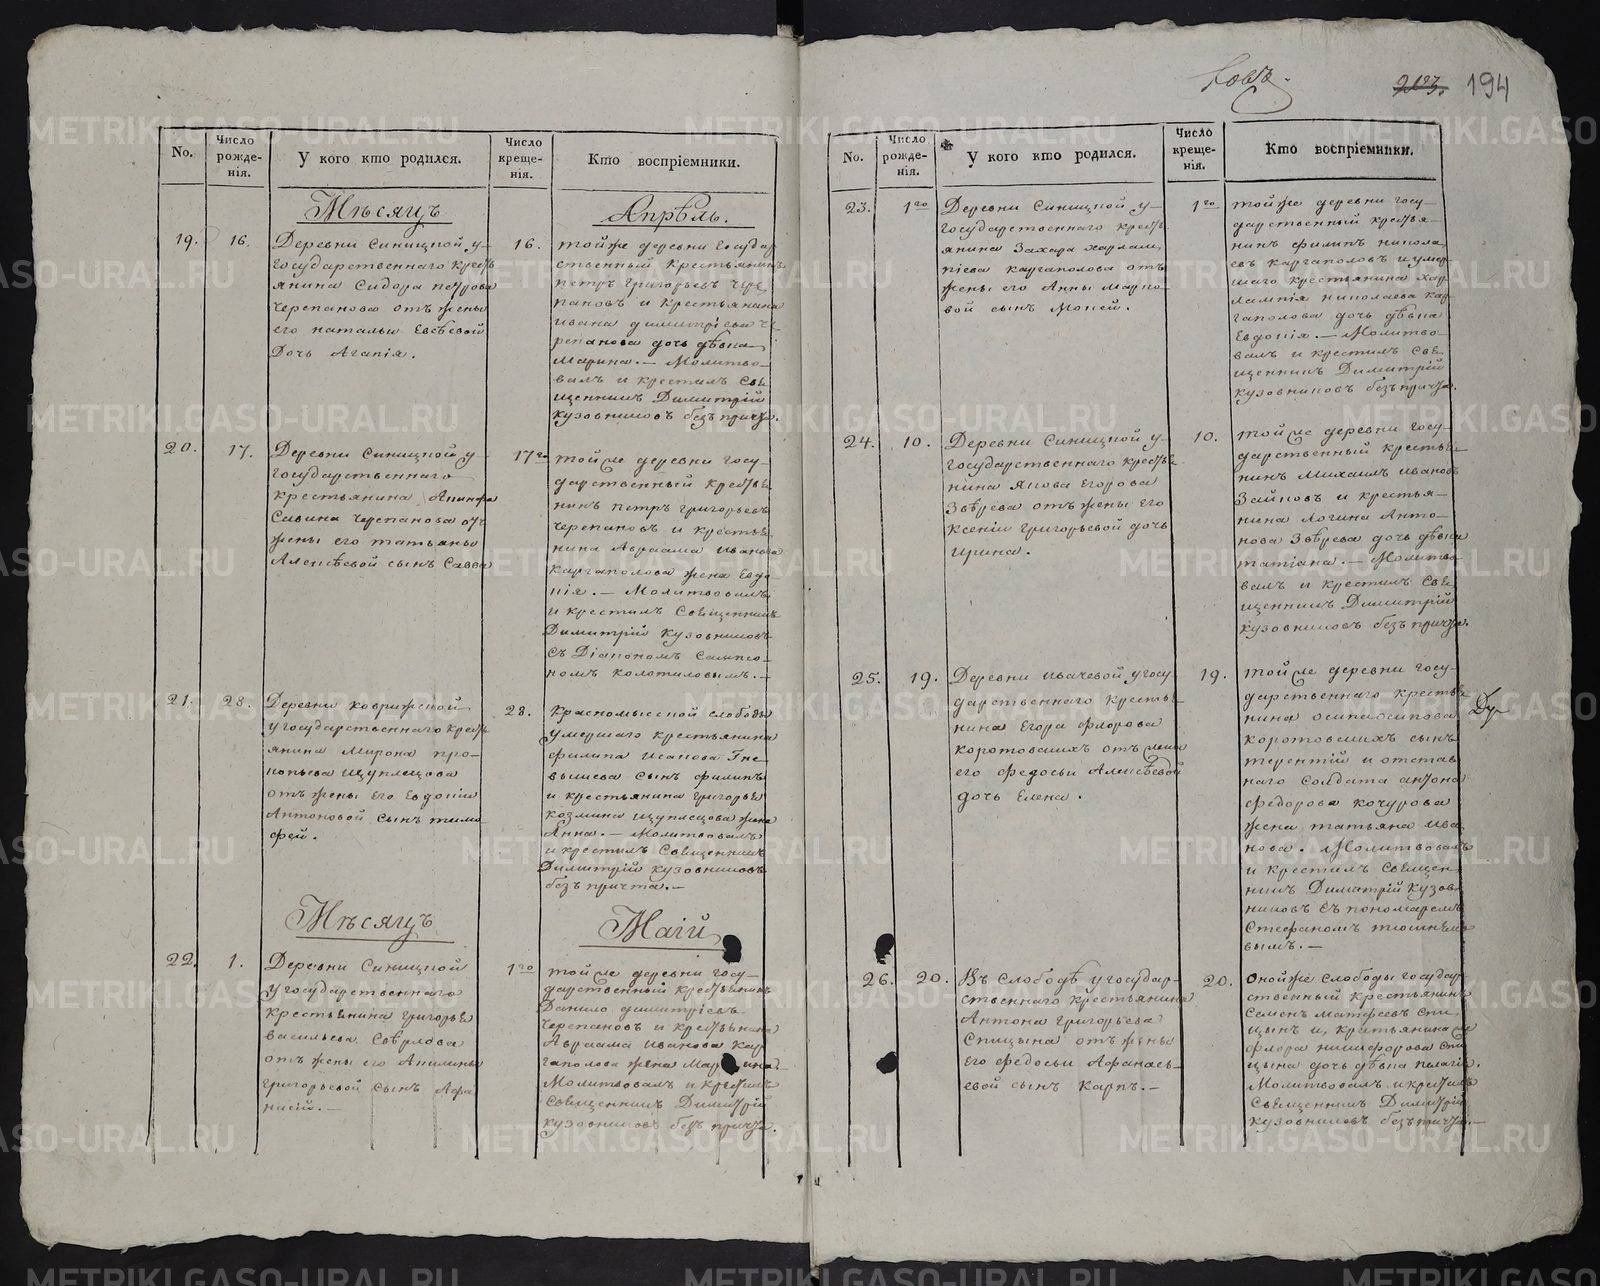 194
No.
Число рожде-нія.
У кого кто родился.
Число креще-нія.
Кто воспріемники.
Мѣсяцъ
Апрѣль.
19.
16.
Деревни Синицной у
государственнаго кресть
янина Сидора петрова
Черепанова отъ жены
его натальи Евсѣевой
Дочь Агапія.
16.
тойже деревни государ
ственный крестьянинъ
петръ григорьевъ чере
пановъ и крестьянина
ивана димитріева че
репанова дочь дѣвка
Марина. — Молитво-
валъ и крестилъ Свя
щенникъ Димитрій
кузовниковъ безъ причта.
20.
17.
Деревни Синицной у
государственнаго
крестьянина
Савина Черепанова отъ
жены его татьяны
Алексѣевой сынъ Савва
17го
тойже деревни госу-
дарственный крестья
нинъ петръ григорьевъ
черепановъ и крестья
нина Авраама иванова
каргаполова жена Евдо
кія. — Молитвовалъ
и крестилъ Священникъ
Димитрій кузовниковъ
съ Діакономъ Сампсо-
номъ колотиловымъ. —
21.
28.
Деревни ковригской
у государственнаго кресть
янина Мирона про-
копьева щуплецова
отъ жены его Евдокіи
Антоновой сынъ тимо
фей.
28.
Красномысской слободы
умершаго крестьянина
филипа исакова Гне
вышева сынъ филипъ
и крестьянина григорья
козмина щуплецова жена
Анна. — Молитвовалъ
и крестилъ Священникъ
Димитрій кузовниковъ
безъ причта. —
Мѣсяцъ
Маій
22.
1.
Деревни Синицной
у государственнаго
крестьянина григорья
васильева Свѣрлова
отъ жены его Акилины
григорьевой сынъ Афа
насій. —
1го
тойже деревни госу-
дарственный крестьянинъ
Данило димитріевъ
черепановъ и крестьянина
Авраама иванова кар
гаполова жена
Молитвовалъ и крестилъ
Священникъ Димитрій
кузовниковъ безъ причта.
No.
Число рожде-нія.
У кого кто родился.
Число креще-нія.
Кто воспріемники.
23.
1го
Деревни Синицной у-
государственнаго кресть
янина Захара харлам
піева каргаполова отъ
жены его Анны марко
вой сынъ Мокей.
1го
тойже деревни госу-
дарственный крестья-
нинъ филипъ никола
евъ каргаполовъ и умер
шаго крестьянина хар
лампія николаева кар
гаполова дочь дѣвка
Евдокія. — Молитво-
валъ и крестилъ Свя-
щенникъ Димитрій
кузовниковъ безъ причта.
24.
10.
Деревни Синицной у-
государственнаго крестья
нина Якова Егорова
Звѣрева отъ жены его
Ксеніи григорьевой дочь
ирина.
10.
тойже деревни госу-
дарственный крестья
нинъ Михаилъ ивановъ
Зайковъ и крестья-
нина Логина Анто-
нова Звѣрева дочь дѣвка
татіана. — Молитво
валъ и крестилъ Свя
щенникъ Димитрій
кузовниковъ безъ причта.
25.
19.
Деревни ивачевой у госу
дарственнаго крестья
нина Егора флорова
коротовскихъ отъ жены
его федосьи Алексѣевой
дочь Елена.
19.
тойже деревни госу-
дарственнаго крестья
нина осипа осипова
коротовскихъ сынъ
терентій и отстав
наго солдата антона
федорова кочурова
жена татьяна ива
нова. Молитвовалъ
и крестилъ Священ
никъ Димитрій кузов
никовъ съ пономаремъ
Стефаномъ тюшняко
вымъ. —
26.
20.
Въ Слободѣ у государ-
ственнаго крестьянина
Антона григорьева
Спицына отъ жены
его федосьи Афанась-
евой сынъ карпъ. —
20.
онойже слободы государ
ственный крестьянинъ
Семенъ матфеевъ Спи
цынъ и крестьянина же
флора никифорова Спи
цына дочь дѣвка пелагія.
Молитвовалъ и крестилъ
Священникъ Димитрій
кузовниковъ безъ причта. —